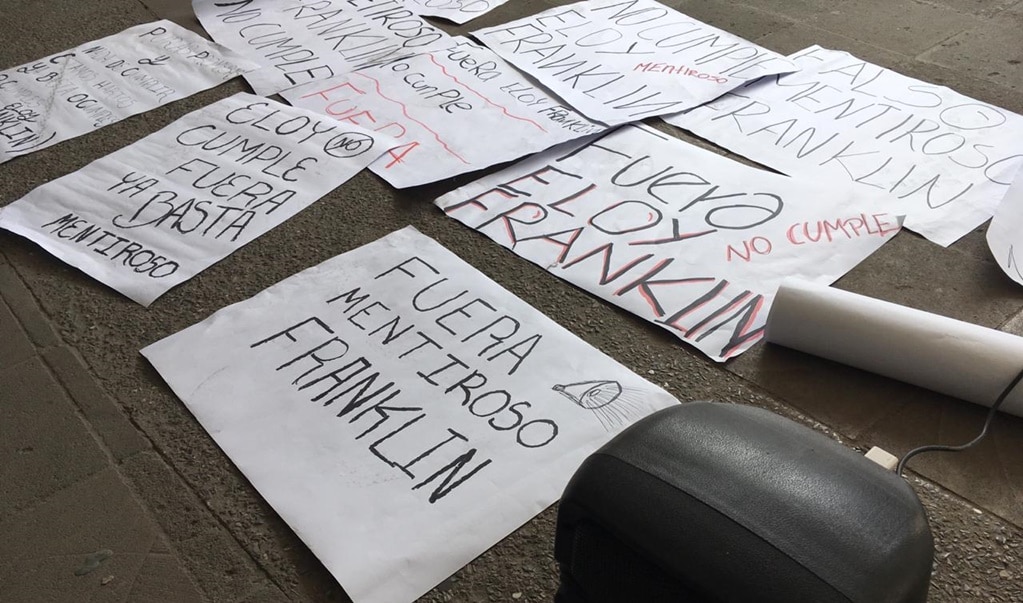 NO CUMPLE
FRANKLIN
MENTIROSO
FUERA ELOY FRANKLIN
NO CUMPLE
FUERA
NO CUMPLE
ELOY
FRANKLIN
MENTIROSO
FALSO
MENTIROSO
FRANKLIN
ELOY NO
CUMPLE
FUERA
YA BASTA
MENTIROSO
Fuera
ELOY
FRANKLIN
NO CUMPLE
FUERA
MENTIROSO
FRANKLIN